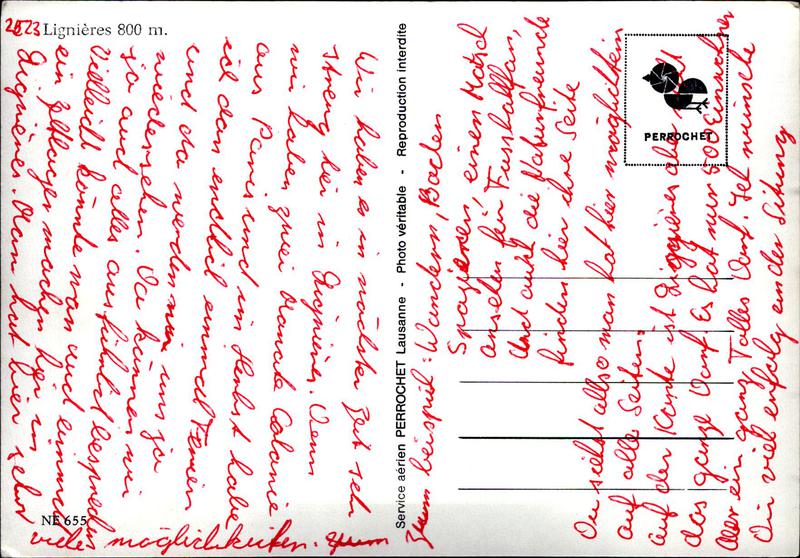 2523 Lignières 800 m.
Wir haben es in nächster Zeit sehr
streng hier in Lignières. Denn
wir haben zwei Colonie
aus Paris und im Herbst habe
ich dan endlich einmal Ferien
und da werden wir uns ja
wiedersehen. Da können wir
ja auch alles ausführlich besprechen
Vielleicht könnte man auch einmal
ein Zeltlager machen hier in
Lignières. Man hat hier sehr
viele möglichkeiten. zum
NE 655
Service aérien PERROCHET Lausanne - Photo véritable - Reproduction interdite
PERROCHET
Zum beispiel: Wandern, Baden
Spazieren, einen Match
ansehen für Fussballfan,
Und auch die Naturfreunde
finden hier ihre Seite
Du siehst also man hat hier möglichkeiten
auf alle Seiten.
auf der Karte ist Lignières aber nicht
das ganze Dorf. Es hat nur 500 Einwohner
aber ein ganz Tolles Dorf. Ich wünsche
Dir viel erfolg an der Sitzung